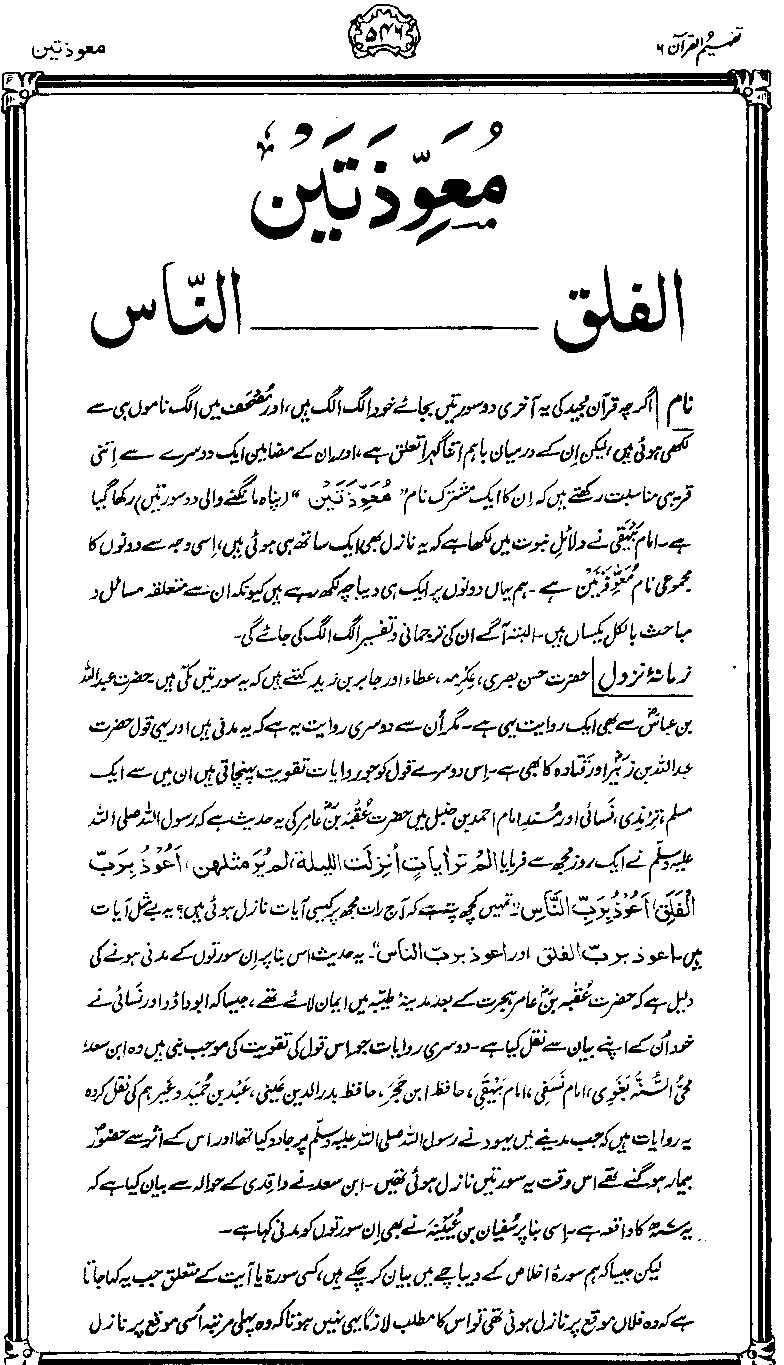 تفہیم القرآن ۶
۵۴۶
معوذتین
مُعَوِّذَتَین
الفلق ــــــــ النّاس
نام | اگرچہ قرآن مجید کی یہ آخری دو سورتیں بجائے خود الگ الگ ہیں، اور مُصْحَف میں الگ ناموں ہی سے
لکھی ہوئی ہیں، لیکن اِن کے درمیان باہم اتنا گہرا تعلق ہے، اور ان کے مضامین ایک دوسرے سے اِتنی
قریبی مناسبت رکھتے ہیں کہ اِن کا ایک مشترک نام "مُعَوِّذَتَیْن" (پناہ مانگنے والی دو سورتیں) رکھا گیا
ہے۔ امام بَیْہَقی نے دلائلِ نبوت میں لکھا ہے کہ یہ نازل بھی ایک ساتھ ہی ہوئی ہیں، اِسی وجہ سے دونوں کا
مجموعی نام مُعَوِّذَتَیْن ہے۔ ہم یہاں دونوں پر ایک ہی دیباچہ لکھ رہے ہیں کیونکہ ان سے متعلقہ مسائل و
مباحث بالکل یکساں ہیں۔ البتہ آگے ان کی ترجمانی و تفسیر الگ الگ کی جائے گی۔
زمانۂ نزول | حضرت حسن بصری، عِکْرِمہ، عطاء اور جابر بن زید کہتے ہیں کہ یہ سورتیں مکّی ہیں۔ حضرت عبداللہ
بن عباسؓ سے بھی ایک روایت یہی ہے۔ مگر اُن سے دوسری روایت یہ ہے کہ یہ مدنی ہیں اور یہی قول حضرت
عبداللہ بن زبیرؓ اور قتادہ کا بھی ہے۔ اِس دوسرے قول کو جو روایات تقویت پہنچاتی ہیں ان میں سے ایک
مسلم، ترمذی، نَسائی اور مُسند امام احمد بن حنبل میں حضرت عُقْبہ بنؓ عامر کی یہ حدیث ہے کہ رسول اللہ صلی اللہ
علیہ وسلّم نے ایک روز مجھ سے فرمایا الم تر اٰیاتٍ أنزلت اللیلة، لم یُرَ مثلھن، اَعُوْذُ بِرَبِّ
الْفَلَقِ، اَعُوْذُ بِرَبِّ النَّاسِ "تمہیں کچھ پتہ ہے کہ آج رات مجھ پر کیسی آیات نازل ہوئی ہیں؟ یہ بے مثل آیات
ہیں۔ اعوذ بربّ الفلق اور اعوذ بربّ الناس"۔ یہ حدیث اس بنا پر اِن سورتوں کے مدنی ہونے کی
دلیل ہے کہ حضرت عُقْبہ بنؓ عامر ہجرت کے بعد مدینۂ طیّبہ میں ایمان لائے تھے، جیسا کہ ابوداؤد اور نَسائی نے
خود اُن کے اپنے بیان سے نقل کیا ہے۔ دوسری روایات جو اس قول کی تقویت کی موجب بنی ہیں وہ ابن سعد،
مُحیُّ السُّنَّہ بَغَوِی، امام نَسَفِی، امام بَیْہَقِی، حافظ ابن حَجَر، حافظ بدر الدین عینی، عَبْد بن حُمَید وغیرہم کی نقل کردہ
یہ روایات ہیں کہ جب مدینے میں یہود نے رسول اللہ صلی اللہ علیہ وسلّم پر جادو کیا تھا اور اس کے اثر سے حضورؐ
بیمار ہو گئے تھے اس وقت یہ سورتیں نازل ہوئی تھیں۔ ابن سعد نے واقدی کے حوالہ سے بیان کیا ہے کہ
یہ کا واقعہ ہے۔ اِسی بنا پر سُفیان بن عُیَیْنَہ نے بھی اِن سورتوں کو مدنی کہا ہے۔
لیکن جیسا کہ ہم سورۂ اخلاص کے دیباچے میں بیان کر چکے ہیں، کسی سورۃ یا آیت کے متعلق جب یہ کہا جاتا
ہے کہ وہ فلاں موقع پر نازل ہوئی تھی تو اس کا مطلب لازماً یہی نہیں ہوتا کہ وہ پہلی مرتبہ اُسی موقع پر نازل